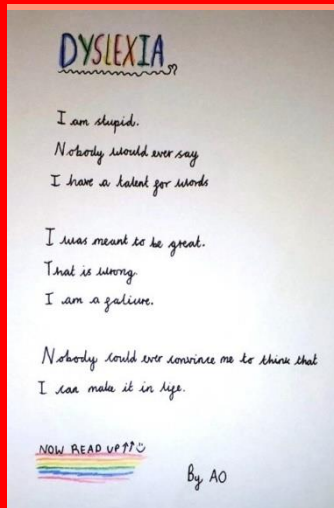 DYSLEXIA
I am stupid.
Nobody would ever say
I have a talent for words
I was meant to be great.
That is wrong.
I am a faliure.
Nobody could ever convince me to think that
I can make it in life.
NOW READ UP ↑↑☺
By AO